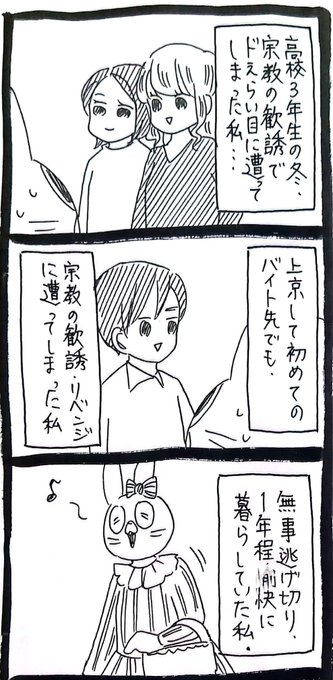 高校3年生の冬、
宗教の歓誘で
ドえらい目に遭って
しまった私…
上京して初めての
バイト先でも、
宗教の歓誘・リベンジ
に遭ってしまった私
無事逃げ切り、
1年程愉快に
暮らしていた私。